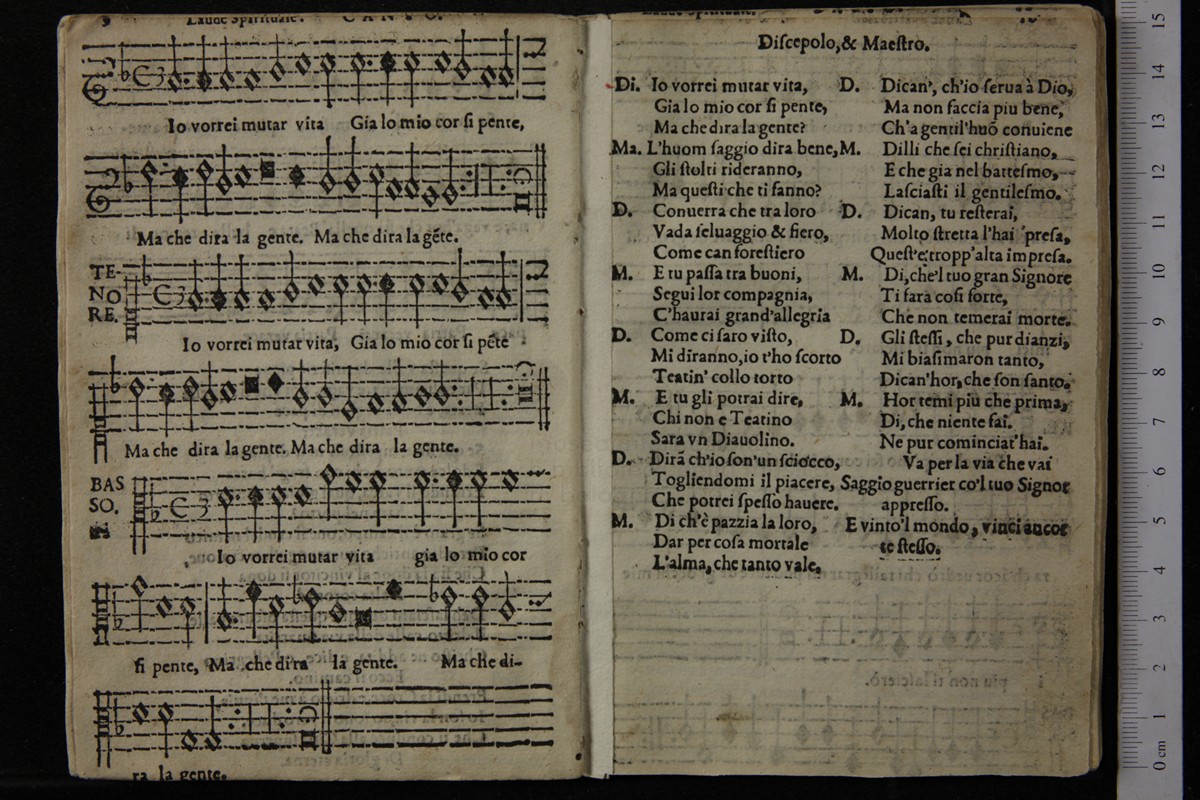 Laude Spirituale. CANTO.
Io vorrei mutar vita Gia lo mio cor ſi pente,
Ma che dira la gente. Ma che dira la gẽte.
TE-
NO
RE.
Io vorrei mutar vita, Gia lo mio cor ſi pẽte
Ma che dira la gente. Ma che dira la gente.
BAS
SO.
Io vorrei mutar vita gia lo mio cor
ſi pente, Ma che dira la gente. Ma che di-
ra la gente.
Diſcepolo, & Maeſtro.
Di. Io vorrei mutar vita,
Gia lo mio cor ſi pente,
Ma che dira la gente?
Ma. L'huom ſaggio dira bene,
Gli ſtolti rideranno,
Ma queſti che ti fanno?
D. Conuerra che tra loro
Vada ſeluaggio & fiero,
Come can foreſtiero
M. E tu paſſa tra buoni,
Segui lor compagnia,
C'haurai grand'allegria
D. Come ci ſaro viſto,
Mi diranno, io t'ho ſcorto
Teatin' collo torto
M. E tu gli potrai dire,
Chi non e Teatino
Sara vn Diauolino.
D. Dirã ch'io ſon'un ſciocco,
Togliendomi il piacere,
Che potrei ſpeſſo hauere.
M. Di ch'è pazzia la loro,
Dar per coſa mortale
L'alma, che tanto vale,
D. Dican', ch'io ſerua à Dio,
Ma non faccia piu bene,
Ch'a gentil'huõ conuiene
M. Dilli che ſei chriſtiano,
E che gia nel batteſmo,
Laſciaſti il gentileſmo.
D. Dican, tu reſterai,
Molto ſtretta l'hai preſa,
Queſt'e tropp'alta impreſa.
M. Di, che'l tuo gran Signore
Ti fara coſi forte,
Che non temerai morte.
D. Gli ſteſſi, che pur dianzi,
Mi biaſimaron tanto,
Dican'hor, che ſon ſanto.
M. Hor temi piu che prima,
Di, che niente fai.
Ne pur cominciat'hai.
Va per la via che vai
Saggio guerrier co'l tuo Signor
appreſſo.
E vinto'l mondo, vinci ancor
te ſteſſo.
piu non ti laſcierò.
0 cm 1 2 3 4 5 6 7 8 9 10 11 12 13 14 15